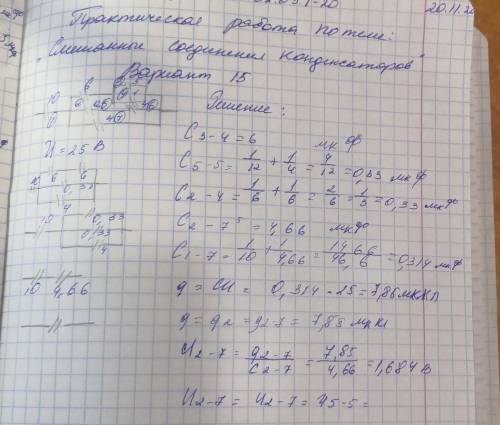 20.11.20
Практическая работа по теме:
"Смешанные соединения кондисаторов"
Вариант 15
Решение:
U = 25 В
C3-4 = 6 мкФ
C5-5 = 1/12 + 1/4 = 4/12 = 0,33 мкФ
C2-4 = 1/6 + 1/6 = 2/6 = 1/3 = 0,33 мкФ
C2-7 = 4,66 мкФ
C1-7 = 1/10 + 1/4,66 = 14,66/46,6 = 0,314 мкФ
q = CU = 0,314 · 25 = 7,85 мкКл
q = q2 = q2-7 = 7,85 мкКл
U2-7 = q2-7/C2-7 = 7,85/4,66 = 1,684 В
U2-7 = U2-7 = U5-5 =
10 6 6
0,33
10 4
0,33
0,33
4
10 4,66